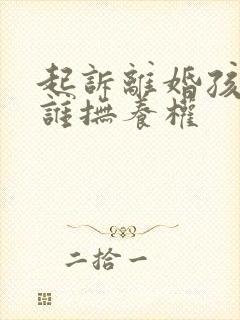 起訴離婚孩
誰撫養權
二拾一